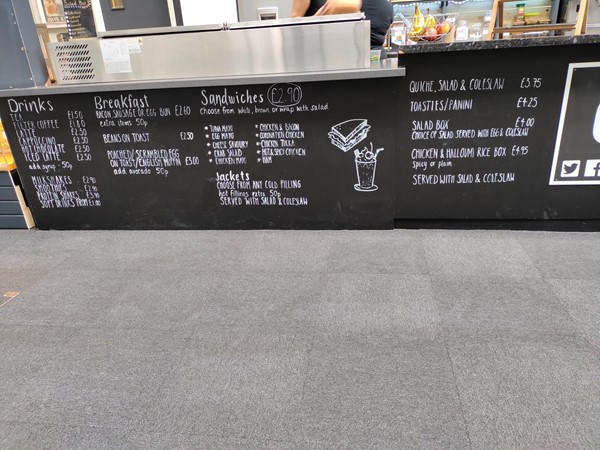 Drinks
TEA £1.50
FILTER COFFEE £1.80
LATTE £2.50
CAPPUCCINO £2.50
HOT CHOCOLATE £2.50
ICED LATTE £2.50
add syrup - 50p
MILKSHAKES £2.90
SMOOTHIES £2.90
SOFT DRINKS FROM £1.00
Breakfast
BACON SAUSAGE OR EGG BUN £2.60
extra items 50p
BEANS ON TOAST £2.50
POACHED/SCRAMBLED EGG
ON TOAST/ENGLISH MUFFIN £3.00
add avocado 50p
Sandwiches £2.90
Choose from white, brown or wrap with salad
* TUNA MAYO
* EGG MAYO
* CHEESE SAVOURY
* TUNA SALAD
* CHICKEN MAYO
* CHICKEN & BACON
* CORONATION CHICKEN
* CHICKEN TIKKA
* HOT & SPICY CHICKEN
* HAM
Jackets
CHOOSE FROM ANY COLD FILLING
hot fillings extra 50p
SERVED WITH SALAD & COLESLAW
QUICHE, SALAD & COLESLAW £3.75
TOASTIES/PANINI £4.25
SALAD BOX £4.00
CHOICE OF SALAD SERVED WITH EGG & COLESLAW
CHICKEN & HALLOUMI RICE BOX £4.95
spicy or plain
SERVED WITH SALAD & COLESLAW